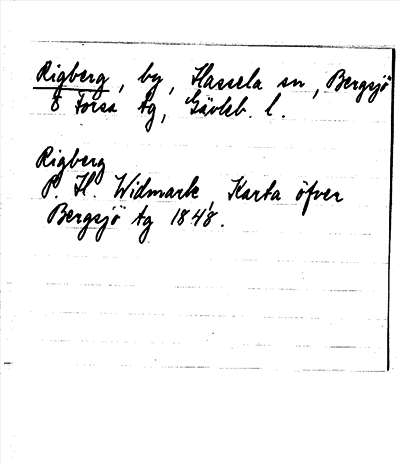 Rigberg, by, Hassela sn, Bergsjö
o Forsa tg, Gävleb. l.
Rigberg
P. H. Widmark, Karta öfver
Bergsjö tg 1848.